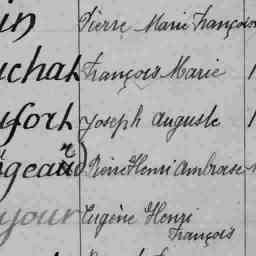 in Pierre Marie François
uchat François Marie
ufort Joseph Auguste
geau René Henri Ambroise
your Eugène Henri
François